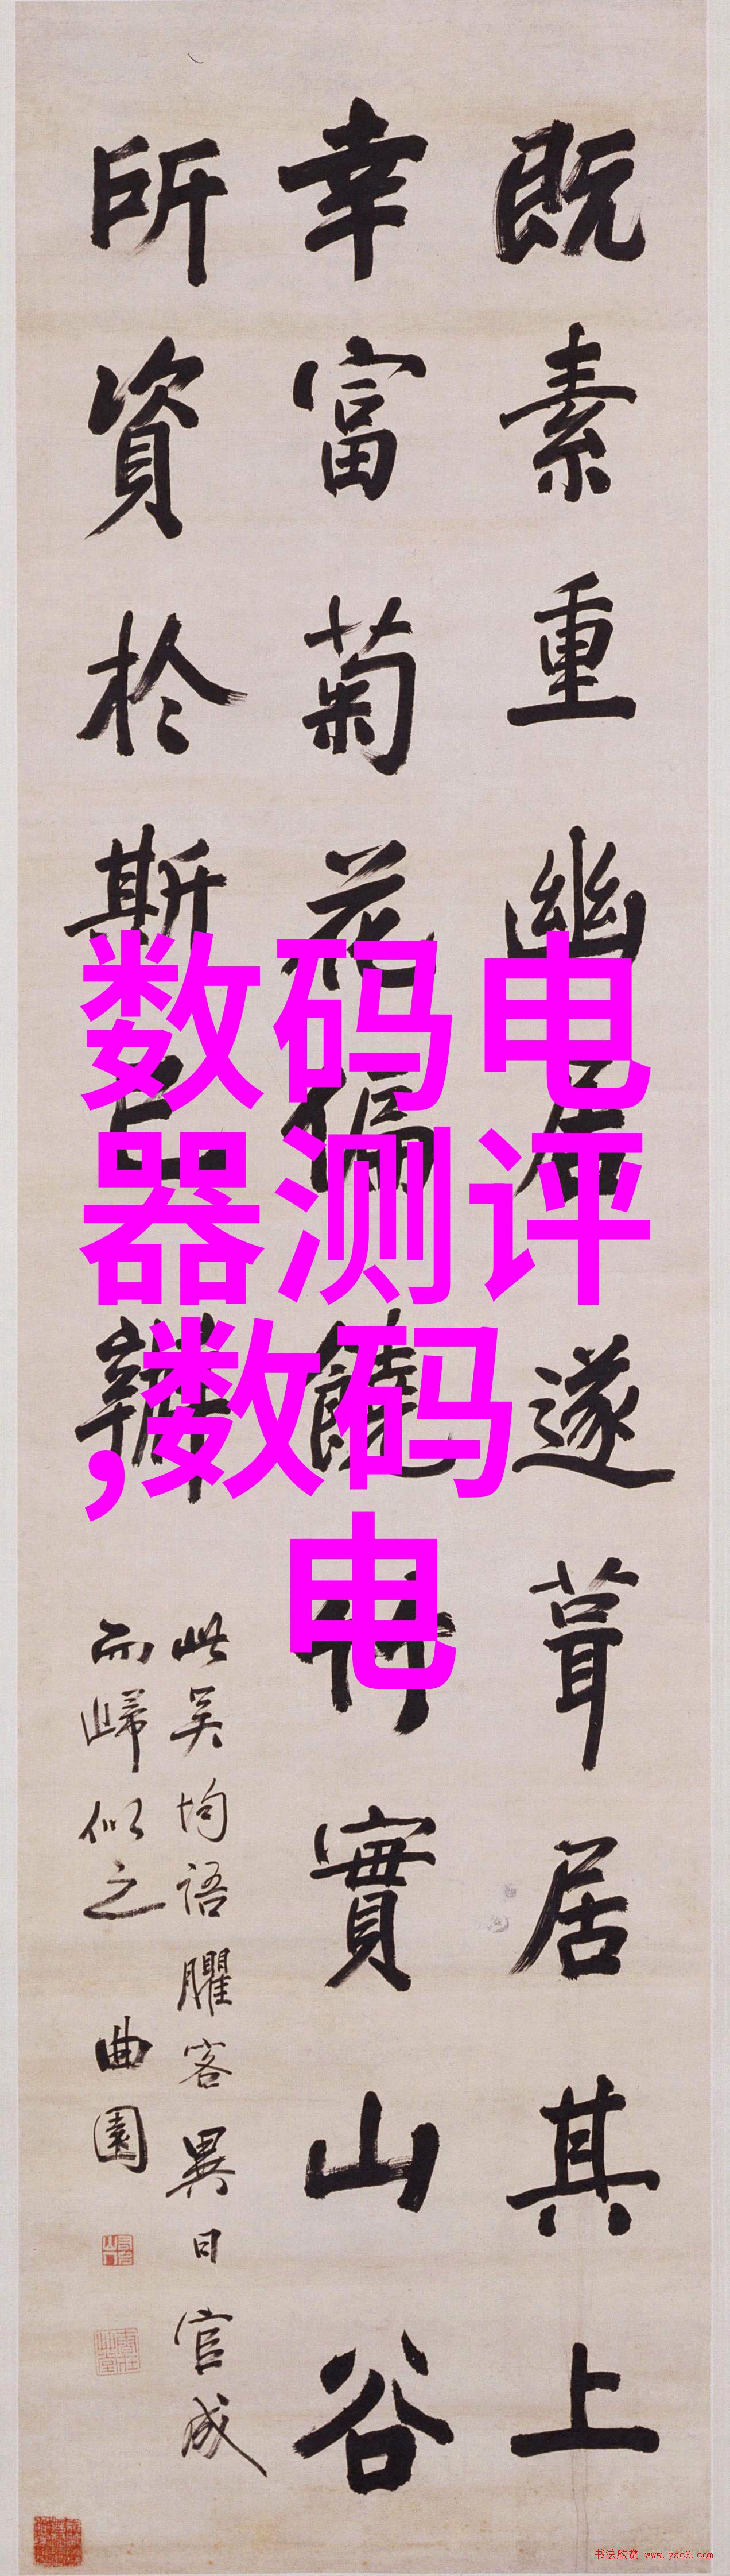 既素重幽居遂葺居其上
幸富菊花偏饒竹實山谷
所資於斯已辦
此吳均語臞客異日官成
而歸似之
曲園
数码电
器测评
,数码
电
书法欣赏 www.yac8.com